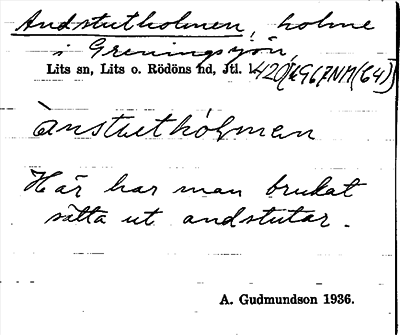 Andstutholmen, holme
i Greningsjön,
Lits sn, Lits o. Rödöns hd, Jtl.
ànstuthòļmen
Här har man brukat
sätta ut andstutar.
A. Gudmundson 1936.